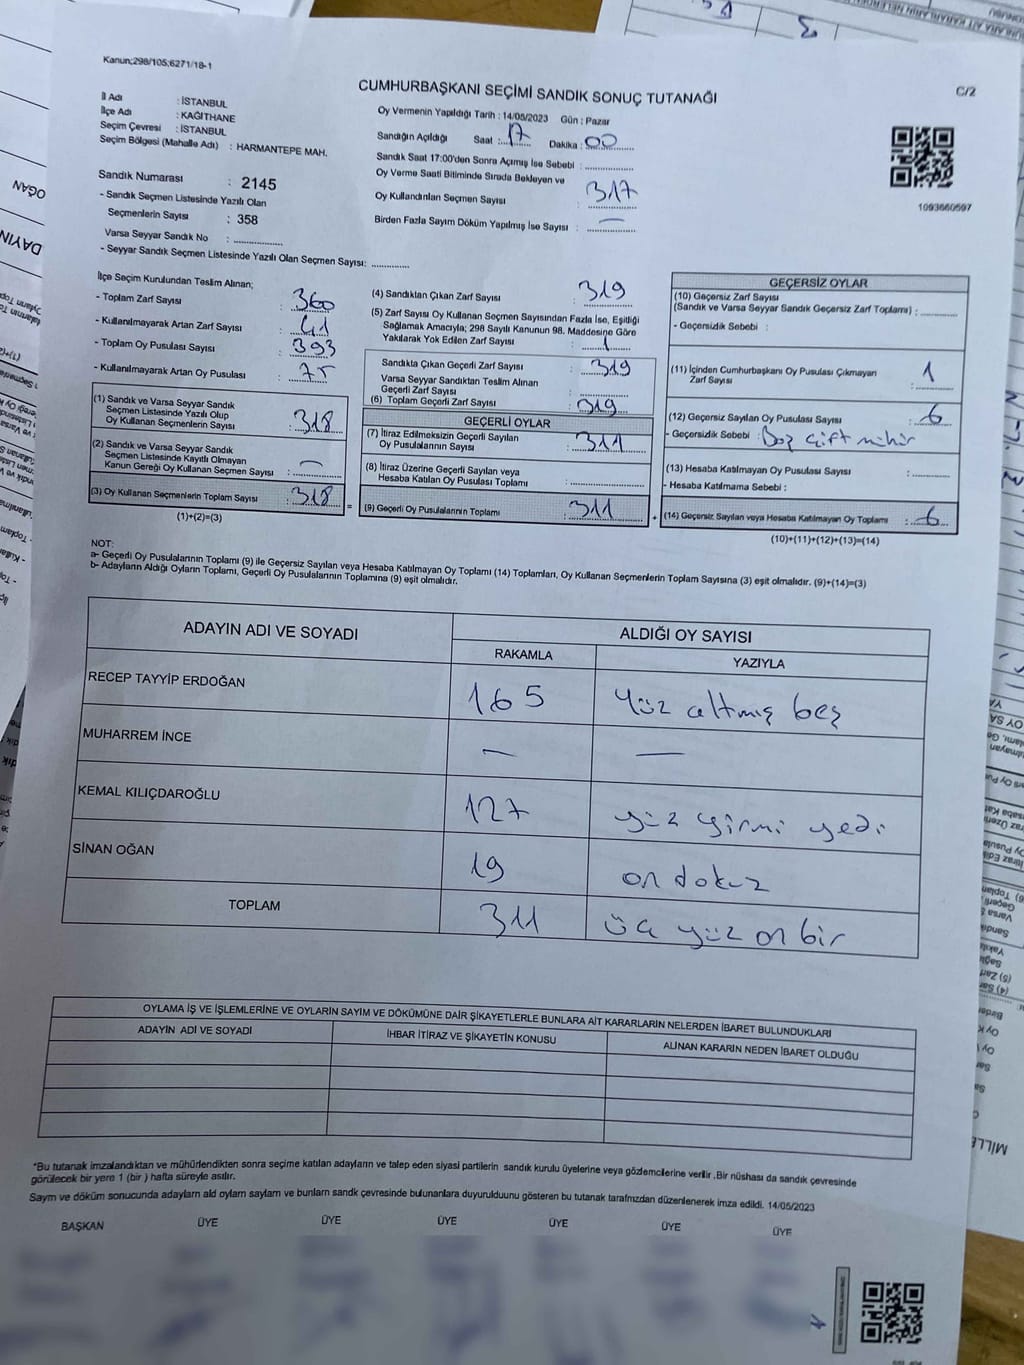 Kanun;298/105;6271/18-1
CUMHURBAŞKANI SEÇİMİ SANDIK SONUÇ TUTANAĞI
C/2
İl Adı : İSTANBUL
İlçe Adı : KAĞITHANE
Seçim Çevresi : İSTANBUL
Seçim Bölgesi (Mahalle Adı) : HARMANTEPE MAH.
Sandık Numarası : 2145
- Sandık Seçmen Listesinde Yazılı Olan
Seçmenlerin Sayısı : 358
Varsa Seyyar Sandık No : ..............
- Seyyar Sandık Seçmen Listesinde Yazılı Olan Seçmen Sayısı: ............
Oy Vermenin Yapıldığı Tarih : 14/05/2023 Gün : Pazar
Sandığın Açıldığı Saat : 17 Dakika : 00
Sandık Saat 17:00'den Sonra Açımış İse Sebebi : ..............
Oy Verme Saati Bitiminde Sırada Bekleyen ve
Oy Kullandırılan Seçmen Sayısı : 317
Birden Fazla Sayım Döküm Yapılmış İse Sayısı : —
1093660597
İlçe Seçim Kurulundan Teslim Alınan;
- Toplam Zarf Sayısı : 360
- Kullanılmayarak Artan Zarf Sayısı : 41
- Toplam Oy Pusulası Sayısı : 393
- Kullanılmayarak Artan Oy Pusulası : 75
(1) Sandık ve Varsa Seyyar Sandık
Seçmen Listesinde Yazılı Olup
Oy Kullanan Seçmenlerin Sayısı : 318
(2) Sandık ve Varsa Seyyar Sandık
Seçmen Listesinde Kayıtlı Olmayan
Kanun Gereği Oy Kullanan Seçmen Sayısı : —
(3) Oy Kullanan Seçmenlerin Toplam Sayısı : 318
(1)+(2)=(3)
(4) Sandıktan Çıkan Zarf Sayısı : 319
(5) Zarf Sayısı Oy Kullanan Seçmen Sayısından Fazla İse, Eşitliği
Sağlamak Amacıyla; 298 Sayılı Kanunun 98. Maddesine Göre
Yakılarak Yok Edilen Zarf Sayısı : 1
Sandıkta Çıkan Geçerli Zarf Sayısı : 319
Varsa Seyyar Sandıktan Teslim Alınan
Geçerli Zarf Sayısı :
(6) Toplam Geçerli Zarf Sayısı : 319
GEÇERLİ OYLAR
(7) İtiraz Edilmeksizin Geçerli Sayılan
Oy Pusulasının Sayısı : 311
(8) İtiraz Üzerine Geçerli Sayılan veya
Hesaba Katılan Oy Pusulası Toplamı :
(9) Geçerli Oy Pusulalarının Toplamı : 311
GEÇERSİZ OYLAR
(10) Geçersiz Zarf Sayısı
(Sandık ve Varsa Seyyar Sandık Geçersiz Zarf Toplamı) :
- Geçersizlik Sebebi :
(11) İçinden Cumhurbaşkanı Oy Pusulası Çıkmayan
Zarf Sayısı : 1
(12) Geçersiz Sayılan Oy Pusulası Sayısı : 6
- Geçersizlik Sebebi : Boş çift mühür
(13) Hesaba Katılmayan Oy Pusulası Sayısı :
- Hesaba Katılmama Sebebi :
(14) Geçersiz Sayılan veya Hesaba Katılmayan Oy Toplamı : 6
(10)+(11)+(12)+(13)=(14)
NOT:
a- Geçerli Oy Pusulalarının Toplamı (9) ile Geçersiz Sayılan veya Hesaba Katılmayan Oy Toplamı (14) Toplamları, Oy Kullanan Seçmenlerin Toplam Sayısına (3) eşit olmalıdır. (9)+(14)=(3)
b- Adayların Aldığı Oyların Toplamı, Geçerli Oy Pusulalarının Toplamına (9) eşit olmalıdır.
ADAYIN ADI VE SOYADI ALDIĞI OY SAYISI
RAKAMLA YAZIYLA
RECEP TAYYİP ERDOĞAN 165 Yüz altmış beş
MUHARREM İNCE — —
KEMAL KILIÇDAROĞLU 127 yüz yirmi yedi
SİNAN OĞAN 19 on dokuz
TOPLAM 311 üç yüz on bir
OYLAMA İŞ VE İŞLEMLERİNE VE OYLARIN SAYIM VE DÖKÜMÜNE DAİR ŞİKAYETLERLE BUNLARA AİT KARARLARIN NELERDEN İBARET BULUNDUKLARI
ADAYIN ADI VE SOYADI İHBAR İTİRAZ VE ŞİKAYETİN KONUSU ALINAN KARARIN NEDEN İBARET OLDUĞU
*Bu tutanak imzalandıktan ve mühürlendikten sonra seçime katılan adayların ve talep eden siyasi partilerin sandık kurulu üyelerine veya gözlemcilerine verilir .Bir nüshası da sandık çevresinde
görülecek bir yere 1 (bir ) hafta süreyle asılır.
Sayım ve döküm sonucunda adayların ald oyların sayların ve bunların sandk çevresinde bulunanlara duyurulduunu gösteren bu tutanak tarafmzdan düzenlenerek imza edildi. 14/05/2023
BAŞKAN ÜYE ÜYE ÜYE ÜYE ÜYE ÜYE